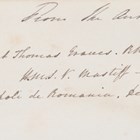 From the Au
Thomas Evans. R.N
H.M.S. V. Mastiff -
poli de Romania,